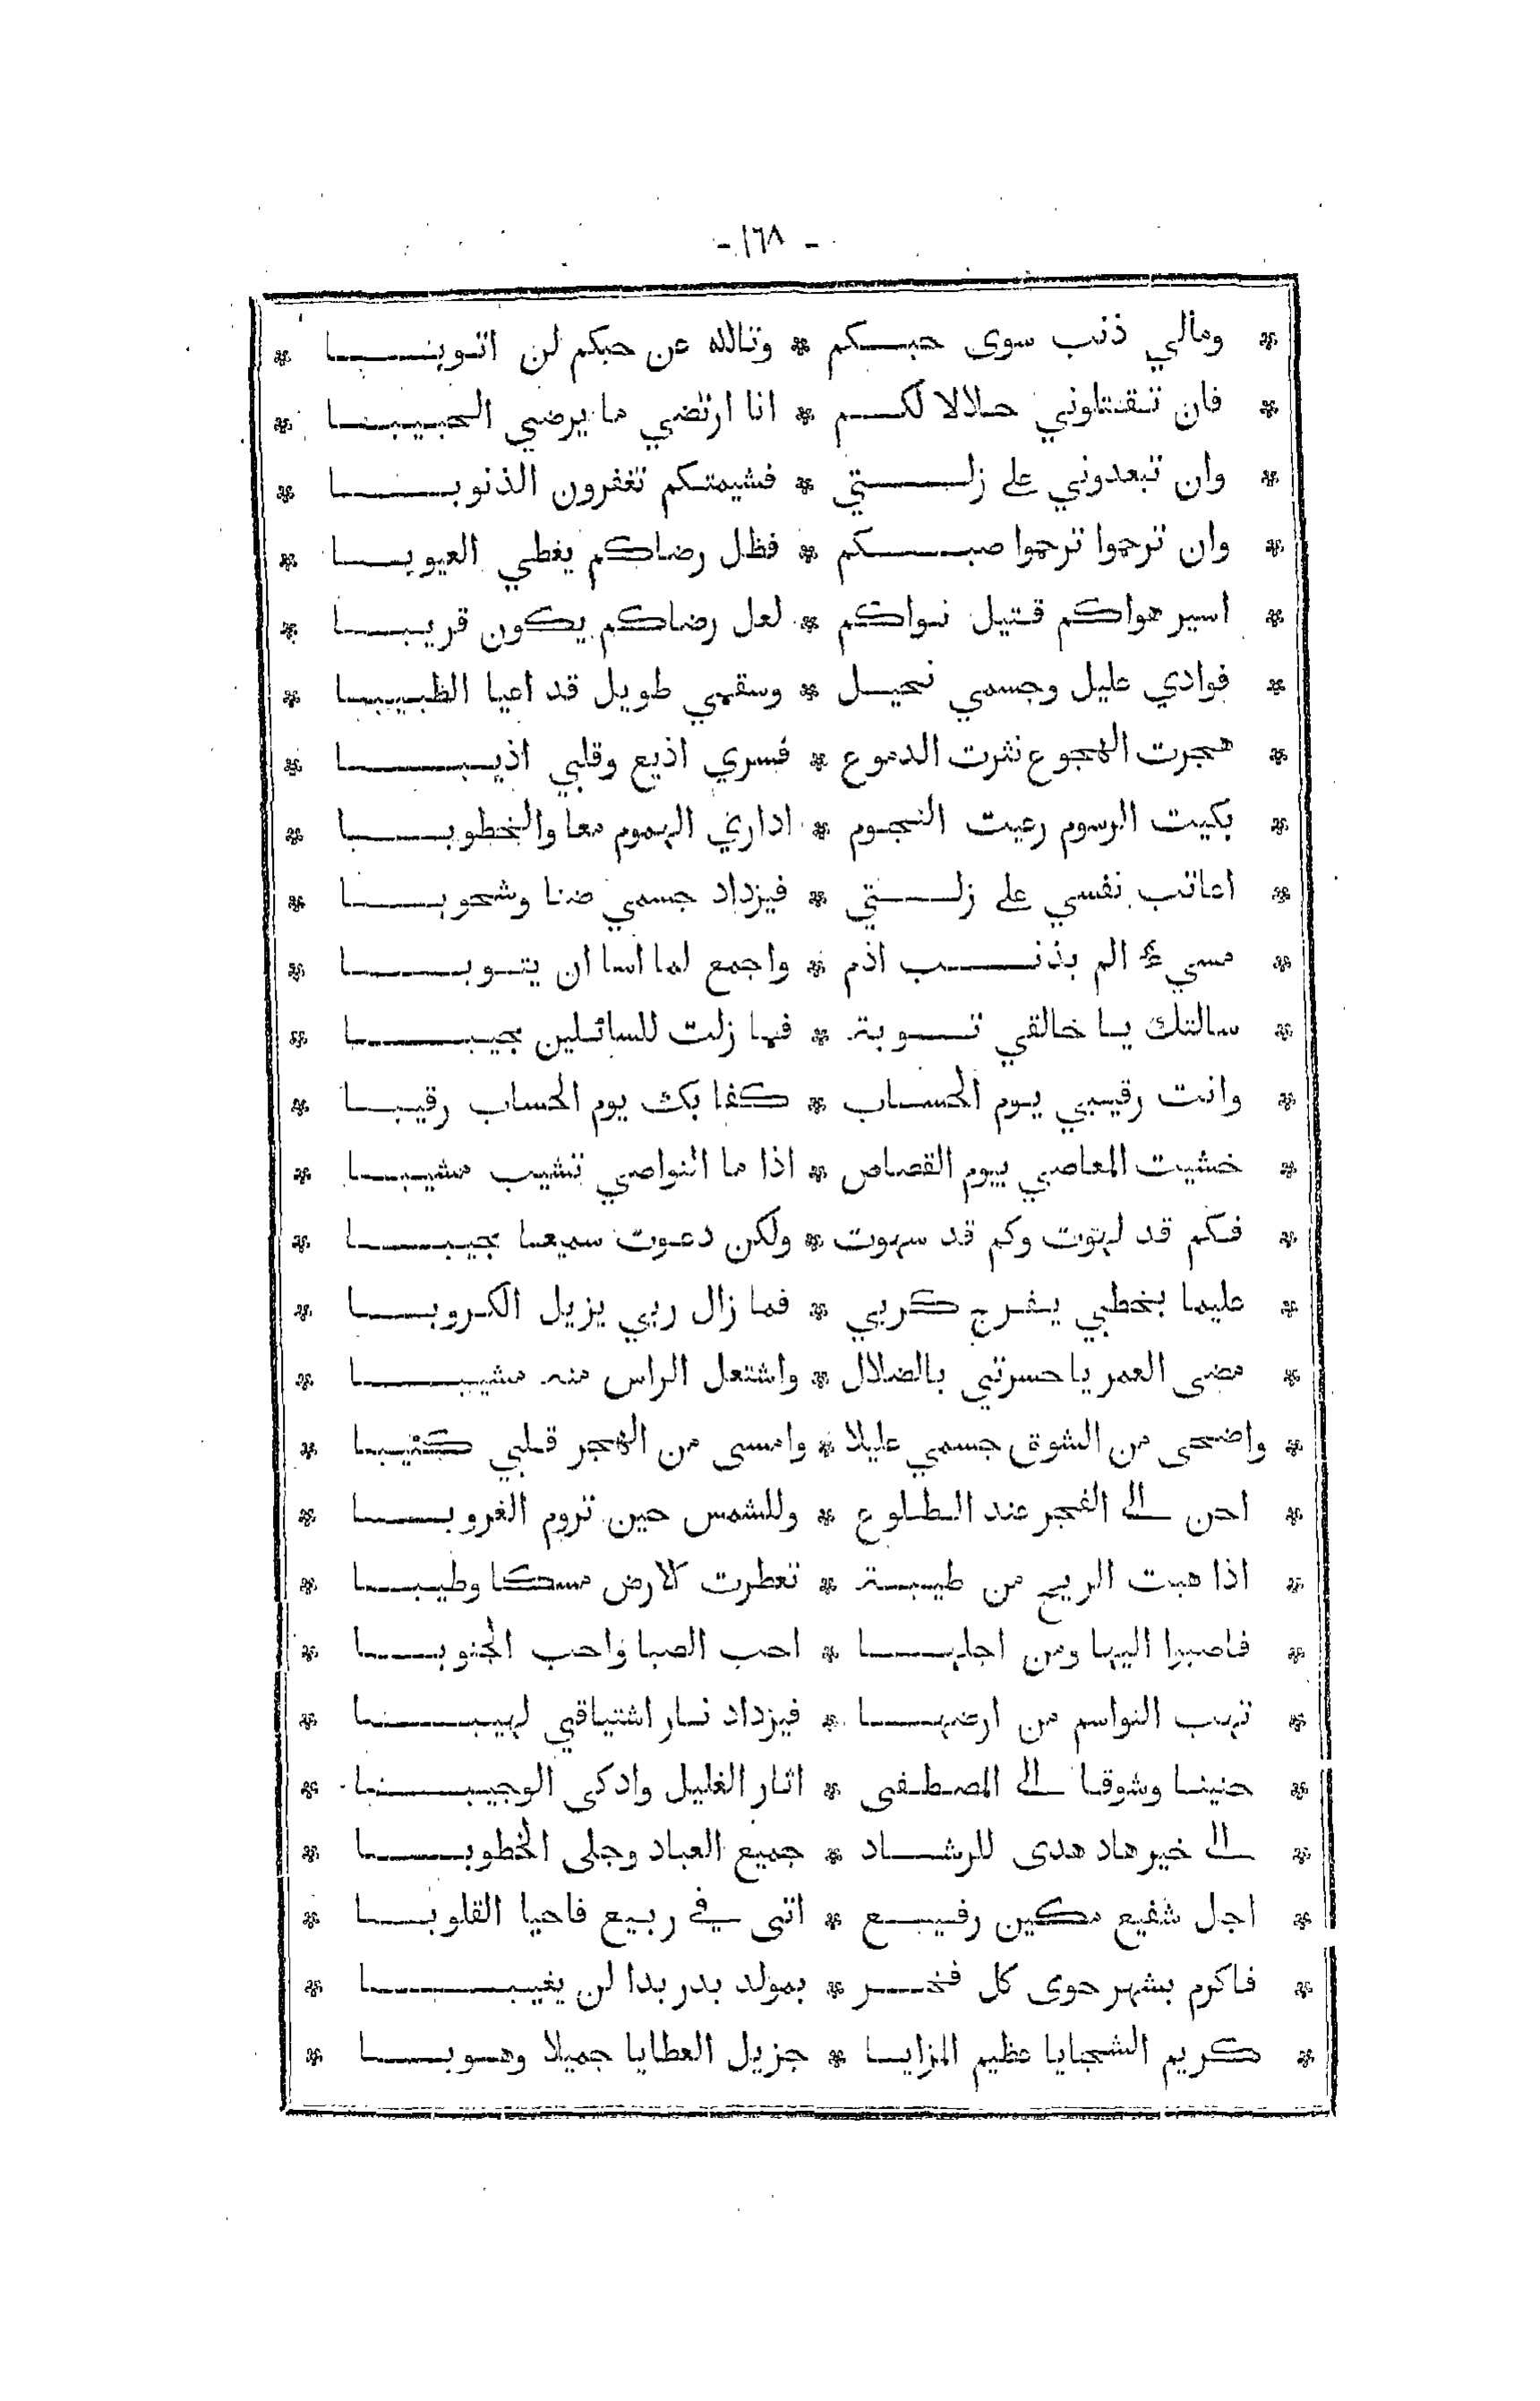 - ١٦٨ -
* ومالي ذنب سوى حبكم * وتالله عن حبكم لن اتوبا *
* فان تقتلوني حلالا لكم * انا ارتضي ما يرضي الحبيبا *
* وان تبعدوني على زلتي * فشيمتكم تغفرون الذنوبا *
* وان ترحموا ترحموا صبكم * فظل رضاكم يغطي العيوبا *
* اسير هواكم قتيل نواكم * لعل رضاكم يكون قريبا *
* فوادي عليل وجسمي نحيل * وسقمي طويل قد اعيا الطبيبا *
* هجرت الهجوع نثرت الدموع * فسري اذيع وقلبي اذيبا *
* بكيت الرسوم رعيت النجوم * اداري الهموم معا والخطوبا *
* اعاتب نفسي على زلتي * فيزداد جسمي ضنا وشحوبا *
* مسيء الم بذنب اذم * واجمع لما اسا ان يتوبا *
* سالتك يا خالقي توبة * فما زلت للسائلين مجيبا *
* وانت رقيبي يوم الحساب * كفا بك يوم الحساب رقيبا *
* خشيت المعاصي بيوم القصاص * اذا ما النواصي تشيب مشيبا *
* فكم قد لهوت وكم قد سهوت * ولكن دعوت سميعا مجيبا *
* عليما بخطبي يفرج كربي * فما زال ربي يزيل الكروبا *
* مضى العمر يا حسرتي بالضلال * واشتعل الراس منه مشيبا *
* واضحى من الشوق جسمي عليلا * وامسى من الهجر قلبي كئيبا *
* احن الى الفجر عند الطلوع * وللشمس حين تروم الغروبا *
* اذا هبت الريح من طيبة * تعطرت الارض مسكا وطيبا *
* فاصبوا اليها ومن اجلها * احب الصبا واحب الجنوبا *
* تهب النواسم من ارضها * فيزداد نار اشتياقي لهيبا *
* حنينا وشوقا الى المصطفى * اثار الغليل واذكى الوجيبا *
* الى خير هاد هدى للرشاد * جميع العباد وجلى الخطوبا *
* اجل شفيع مكين رفيع * اتى في ربيع فاحيا القلوبا *
* فاكرم بشهر حوى كل فخر * بمولد بدر بدا لن يغيبا *
* كريم السجايا عظيم المزايا * جزيل العطايا جميلا وهوبا *